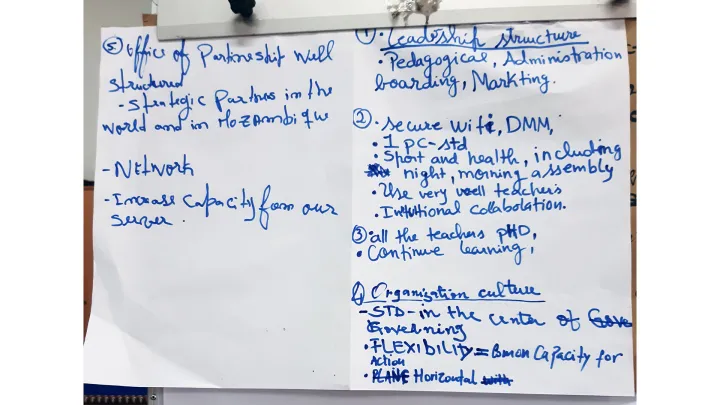 1. Leadership structure
• Pedagogical, Administration
boarding, Markting.
2 • Secure Wifi, DMM,
• 1 PC-std
• Sport and health, including
night, morning assembly
• Use very well teachers
• Intutional collabolation.
3 • all the teachers PHD,
• Continue learning,
4 Organization culture
- STD - in the center of Gove
Governing
• FLEXIBILITY = Capacity for
Action
• PLANE Horizontal with
5 Office of Partineship Well
structured
- Strategic Partnes in the
world and in Mozambique
- Network
- Increase Capacity from our
Server.